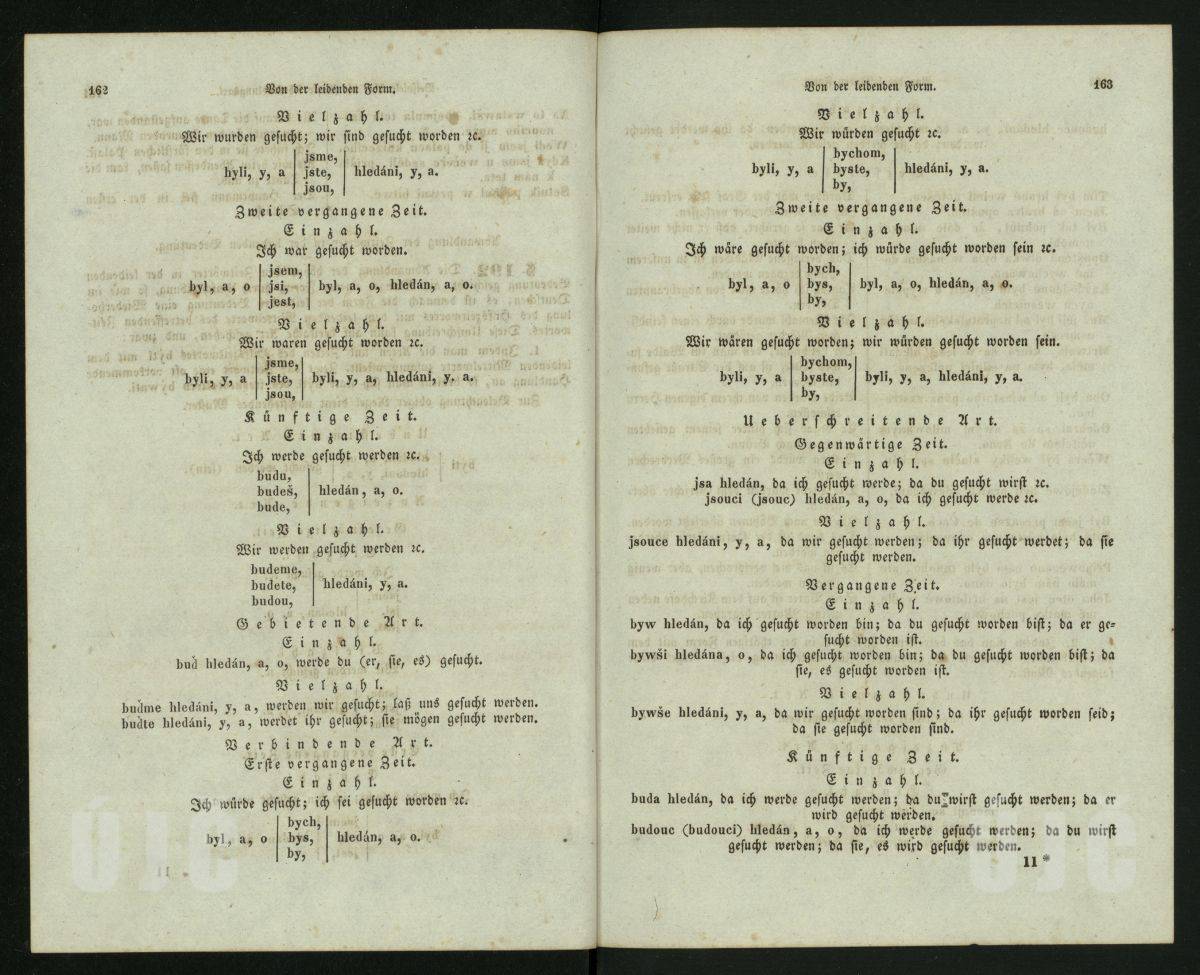 162
Von der leidenden Form.
Vielzahl.
Wir wurden gesucht; wir sind gesucht worden ꝛc.
byli, y, a | jsme, | hledáni, y, a.
jste,
jsou,
Zweite vergangene Zeit.
Einzahl.
Ich war gesucht worden.
byl, a, o | jsem, | byl, a, o, hledán, a, o.
jsi,
jest,
Vielzahl.
Wir waren gesucht worden ꝛc.
byli, y, a | jsme, | byli, y, a, hledáni, y, a.
jste,
jsou,
Künftige Zeit.
Einzahl.
Ich werde gesucht werden ꝛc.
budu,
budeš, | hledán, a, o.
bude,
Vielzahl.
Wir werden gesucht werden ꝛc.
budeme,
budete, | hledáni, y, a.
budou,
Gebietende Art.
Einzahl.
buď hledán, a, o, werde du (er, sie, es) gesucht.
Vielzahl.
buďme hledáni, y, a, werden wir gesucht; laß uns gesucht werden.
buďte hledáni, y, a, werdet ihr gesucht; sie mögen gesucht werden.
Verbindende Art.
Erste vergangene Zeit.
Einzahl.
Ich würde gesucht; ich sei gesucht worden ꝛc.
byl, a, o | bych, | hledán, a, o.
bys,
by,
Von der leidenden Form.
163
Vielzahl.
Wir würden gesucht ꝛc.
byli, y, a | bychom, | hledáni, y, a.
byste,
by,
Zweite vergangene Zeit.
Einzahl.
Ich wäre gesucht worden; ich würde gesucht worden sein ꝛc.
byl, a, o | bych, | byl, a, o, hledán, a, o.
bys,
by,
Vielzahl.
Wir wären gesucht worden; wir würden gesucht worden sein.
byli, y, a | bychom, | byli, y, a, hledáni, y, a.
byste,
by,
Ueberschreitende Art.
Gegenwärtige Zeit.
Einzahl.
jsa hledán, da ich gesucht werde; da du gesucht wirst ꝛc.
jsouci (jsouc) hledán, a, o, da ich gesucht werde ꝛc.
Vielzahl.
jsouce hledáni, y, a, da wir gesucht werden; da ihr gesucht werdet; da sie
gesucht werden.
Vergangene Zeit.
Einzahl.
byw hledán, da ich gesucht worden bin; da du gesucht worden bist; da er ge-
sucht worden ist.
bywši hledána, o, da ich gesucht worden bin; da du gesucht worden bist; da
sie, es gesucht worden ist.
Vielzahl.
bywše hledáni, y, a, da wir gesucht worden sind; da ihr gesucht worden seid;
da sie gesucht worden sind.
Künftige Zeit.
Einzahl.
buda hledán, da ich werde gesucht werden; da du wirst gesucht werden; da er
wird gesucht werden.
budouc (budouci) hledán, a, o, da ich werde gesucht werden; da du wirst
gesucht werden; da sie, es wird gesucht werden.
11 *
ÚJČ
ÚJČ